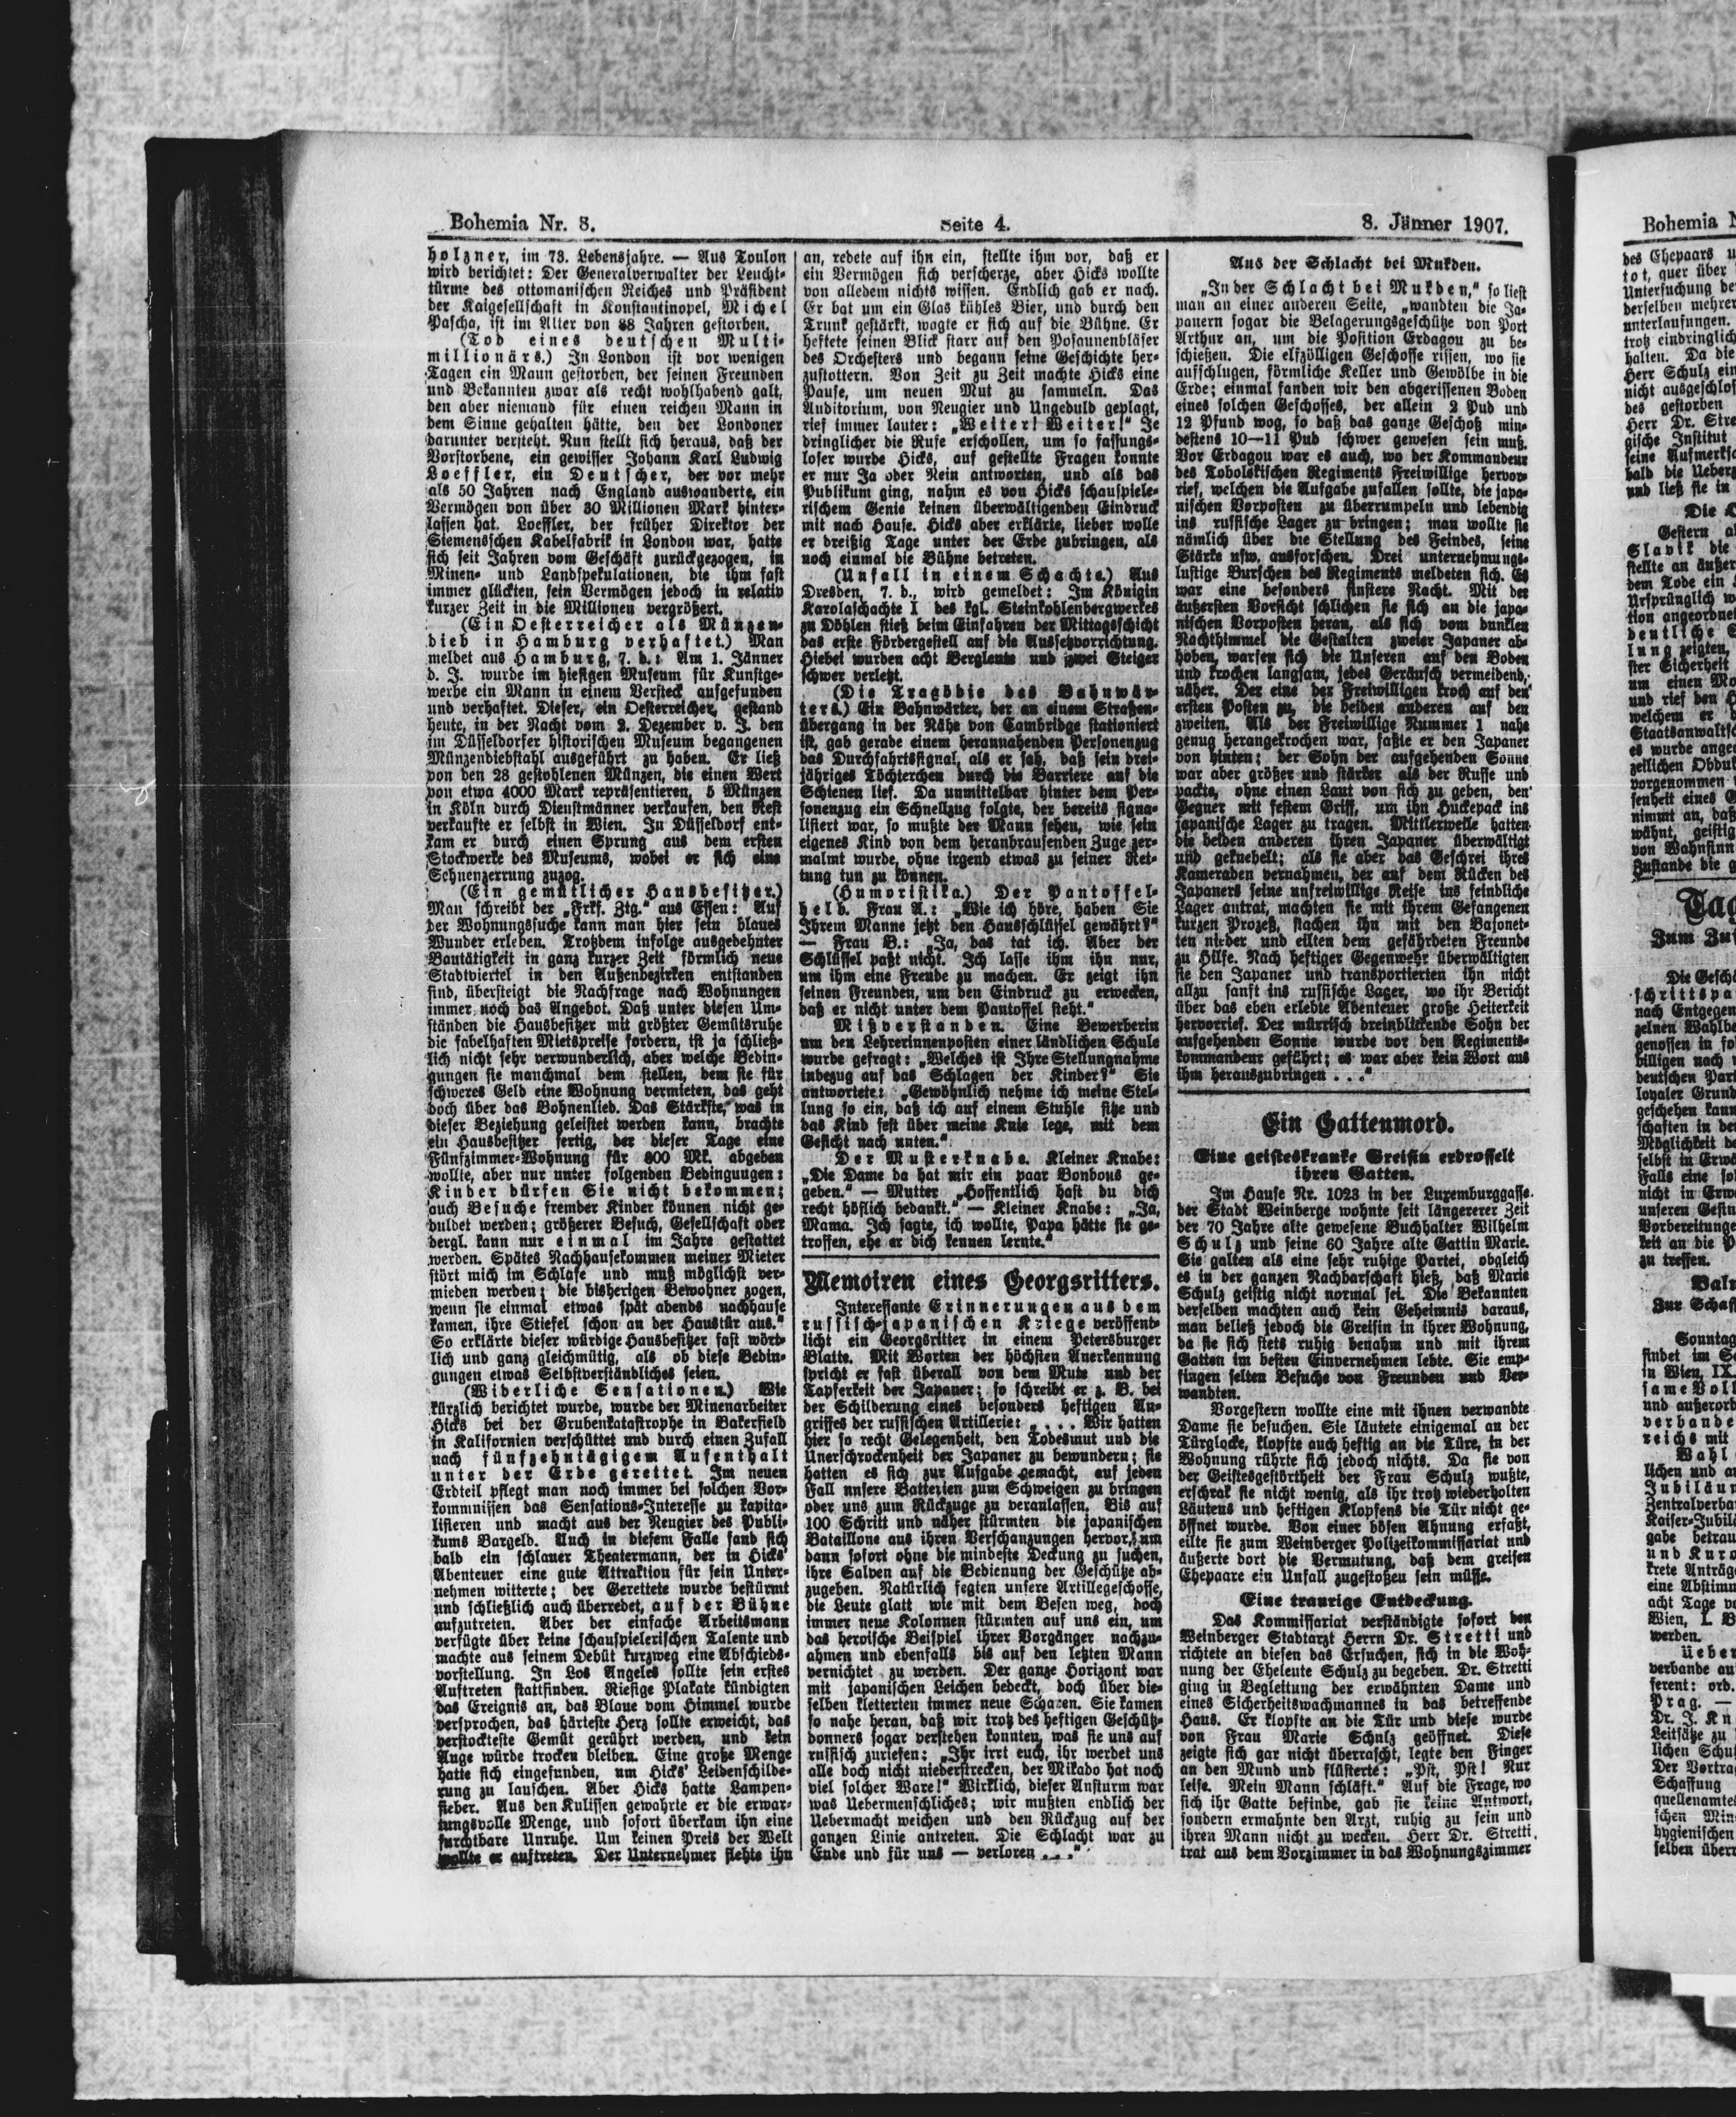 Bohemia Nr. 8.
Seite 4.
8. Jänner 1907.
holzner, im 73. Lebensjahre. — Aus Toulon
wird berichtet: Der Generalverwalter der Leucht-
türme des ottomanischen Reiches und Präsident
der Kaigesellschaft in Konstantinopel, Michel
Pascha, ist im Alter von 88 Jahren gestorben.
(Tod eines deutschen Multi-
millionärs.) In London ist vor wenigen
Tagen ein Mann gestorben, der seinen Freunden
und Bekannten zwar als recht wohlhabend galt,
den aber niemand für einen reichen Mann in
dem Sinne gehalten hätte, den der Londoner
darunter versteht. Nun stellt sich heraus, daß der
Vorstorbene, ein gewisser Johann Karl Ludwig
Loeffler, ein Deutscher, der vor mehr
als 50 Jahren nach England auswanderte, ein
Vermögen von über 30 Millionen Mark hinter-
lassen hat. Loeffler, der früher Direktor der
Siemensschen Kabelfabrik in London war, hatte
sich seit Jahren vom Geschäft zurückgezogen, in
Minen- und Landspekulationen, die ihm fast
immer glückten, sein Vermögen jedoch in relativ
kurzer Zeit in die Millionen vergrößert.
(Ein Oesterreicher als Münzen-
dieb in Hamburg verhaftet.) Man
meldet aus Hamburg, 7. d.: Am 1. Jänner
d. J. wurde im hiesigen Museum für Kunstge-
werbe ein Mann in einem Versteck aufgefunden
und verhaftet. Dieser, ein Oesterreicher, gestand
heute, in der Nacht vom 2. Dezember v. J. den
im Düsseldorfer historischen Museum begangenen
Münzendiebstahl ausgeführt zu haben. Er ließ
von den 28 gestohlenen Münzen, die einen Wert
von etwa 4000 Mark repräsentieren, 5 Münzen
in Köln durch Dienstmänner verkaufen, den Rest
verkaufte er selbst in Wien. In Düsseldorf ent-
kam er durch einen Sprung aus dem ersten
Stockwerke des Museums, wobei er sich eine
Sehnenzerrung zuzog.
(Ein gemütlicher Hausbesitzer.)
Man schreibt der „Frkf. Ztg.“ aus Essen: Auf
der Wohnungssuche kann man hier sein blaues
Wunder erleben. Trotzdem infolge ausgedehnter
Bautätigkeit in ganz kurzer Zeit förmlich neue
Stadtviertel in den Außenbezirken entstanden
sind, übersteigt die Nachfrage nach Wohnungen
immer noch das Angebot. Daß unter diesen Um-
ständen die Hausbesitzer mit größter Gemütsruhe
die fabelhaften Mietspreise fordern, ist ja schließ-
lich nicht sehr verwunderlich, aber welche Bedin-
gungen sie manchmal dem stellen, dem sie für
schweres Geld eine Wohnung vermieten, das geht
doch über das Bohnenlied. Das Stärkste, was in
dieser Beziehung geleistet werden kann, brachte
ein Hausbesitzer fertig, der dieser Tage eine
Fünfzimmer-Wohnung für 800 Mk. abgeben
wollte, aber nur unter folgenden Bedingungen:
Kinder dürfen Sie nicht bekommen;
auch Besuche fremder Kinder können nicht ge-
duldet werden; größerer Besuch, Gesellschaft oder
dergl. kann nur einmal im Jahre gestattet
werden. Spätes Nachhausekommen meiner Mieter
stört mich im Schlafe und muß möglichst ver-
mieden werden; die bisherigen Bewohner zogen,
wenn sie einmal etwas spät abends nachhause
kamen, ihre Stiefel schon an der Haustür aus.“
So erklärte dieser würdige Hausbesitzer fast wört-
lich und ganz gleichmütig, als ob diese Bedin-
gungen etwas Selbstverständliches seien.
(Widerliche Sensationen.) Wie
kürzlich berichtet wurde, wurde der Minenarbeiter
Hicks bei der Grubenkatastrophe in Bakerfield
in Kalifornien verschüttet und durch einen Zufall
nach fünfzehntägigem Aufenthalt
unter der Erde gerettet. Im neuen
Erdteil pflegt man noch immer bei solchen Vor-
kommnissen das Sensations-Interesse zu kapita-
lisieren und macht aus der Neugier des Publi-
kums Bargeld. Auch in diesem Falle fand sich
bald ein schlauer Theatermann, der in Hicks'
Abenteuer eine gute Attraktion für sein Unter-
nehmen witterte; der Gerettete wurde bestürmt
und schließlich auch überredet, auf der Bühne
aufzutreten. Aber der einfache Arbeitsmann
verfügte über keine schauspielerischen Talente und
machte aus seinem Debüt kurzweg eine Abschieds-
vorstellung. In Los Angeles sollte sein erstes
Auftreten stattfinden. Riesige Plakate kündigten
das Ereignis an, das Blaue vom Himmel wurde
versprochen, das härteste Herz sollte erweicht, das
verstockteste Gemüt gerührt werden, und kein
Auge würde trocken bleiben. Eine große Menge
hatte sich eingefunden, um Hicks' Leidenschilde-
rung zu lauschen. Aber Hicks hatte Lampen-
fieber. Aus den Kulissen gewahrte er die erwar-
tungsvolle Menge, und sofort überkam ihn eine
furchtbare Unruhe. Um keinen Preis der Welt
wollte er auftreten. Der Unternehmer flehte ihn
an, redete auf ihn ein, stellte ihm vor, daß er
ein Vermögen sich verscherze, aber Hicks wollte
von alledem nichts wissen. Endlich gab er nach.
Er bat um ein Glas kühles Bier, und durch den
Trunk gestärkt, wagte er sich auf die Bühne. Er
heftete seinen Blick starr auf den Posaunenbläser
des Orchesters und begann seine Geschichte her-
zustottern. Von Zeit zu Zeit machte Hicks eine
Pause, um neuen Mut zu sammeln. Das
Auditorium, von Neugier und Ungeduld geplagt,
rief immer lauter: „Weiter! Weiter!“ Je
dringlicher die Rufe erschollen, um so fassungs-
loser wurde Hicks, auf gestellte Fragen konnte
er nur Ja oder Nein antworten, und als das
Publikum ging, nahm es von Hicks schauspiele-
rischem Genie keinen überwältigenden Eindruck
mit nach Hause. Hicks aber erklärte, lieber wolle
er dreißig Tage unter der Erde zubringen, als
noch einmal die Bühne betreten.
(Unfall in einem Schachte.) Aus
Dresden, 7. d., wird gemeldet: Im Königin
Karolaschachte I des kgl. Steinkohlenbergwerkes
zu Döhlen stieß beim Einfahren der Mittagsschicht
das erste Fördergestell auf die Aussetzvorrichtung.
Hiebei wurden acht Bergleute und zwei Steiger
schwer verletzt.
(Die Tragödie des Bahnwär-
ters.) Ein Bahnwärter, der an einem Straßen-
übergang in der Nähe von Cambridge stationiert
ist, gab gerade einem herannahenden Personenzug
das Durchfahrtssignal, als er sah, daß sein drei-
jähriges Töchterchen durch die Barriere auf die
Schienen lief. Da unmittelbar hinter dem Per-
sonenzug ein Schnellzug folgte, der bereits signa-
lisiert war, so mußte der Mann sehen, wie sein
eigenes Kind von dem heranbrausenden Zuge zer-
malmt wurde, ohne irgend etwas zu seiner Ret-
tung tun zu können.
(Humoristika.) Der Pantoffel-
held. Frau A.: „Wie ich höre, haben Sie
Ihrem Manne jetzt den Hausschlüssel gewährt?“
— Frau B.: „Ja, das tat ich. Aber der
Schlüssel paßt nicht. Ich lasse ihm ihn nur,
um ihm eine Freude zu machen. Er zeigt ihn
seinen Freunden, um den Eindruck zu erwecken,
daß er nicht unter dem Pantoffel steht.“
Mißverstanden. Eine Bewerberin
um den Lehrerinnenposten einer ländlichen Schule
wurde gefragt: „Welches ist Ihre Stellungnahme
inbezug auf das Schlagen der Kinder?“ Sie
antwortete: „Gewöhnlich nehme ich meine Stel-
lung so ein, daß ich auf einem Stuhle sitze und
das Kind fest über meine Knie lege, mit dem
Gesicht nach unten.“
Der Musterknabe. Kleiner Knabe:
„Die Dame da hat mir ein paar Bonbons ge-
geben.“ — Mutter „Hoffentlich hast du dich
recht höflich bedankt.“ — Kleiner Knabe: „Ja,
Mama. Ich sagte, ich wollte, Papa hätte sie ge-
troffen, ehe er dich kennen lernte.“
Memoiren eines Georgsritters.
Interessante Erinnerungen aus dem
russisch-japanischen Kriege veröffent-
licht ein Georgsritter in einem Petersburger
Blatte. Mit Worten der höchsten Anerkennung
spricht er fast überall von dem Mute und der
Tapferkeit der Japaner; so schreibt er z. B. bei
der Schilderung eines besonders heftigen An-
griffes der russischen Artillerie: „ . . . Wir hatten
hier so recht Gelegenheit, den Todesmut und die
Unerschrockenheit der Japaner zu bewundern; sie
hatten es sich zur Aufgabe gemacht, auf jeden
Fall unsere Batterien zum Schweigen zu bringen
oder uns zum Rückzuge zu veranlassen. Bis auf
100 Schritt und näher stürmten die japanischen
Bataillone aus ihren Verschanzungen hervor, um
dann sofort ohne die mindeste Deckung zu suchen,
ihre Salven auf die Bedienung der Geschütze ab-
zugeben. Natürlich fegten unsere Artillegeschosse,
die Leute glatt wie mit dem Besen weg, doch
immer neue Kolonnen stürmten auf uns ein, um
das heroische Beispiel ihrer Vorgänger nachzu-
ahmen und ebenfalls bis auf den letzten Mann
vernichtet zu werden. Der ganze Horizont war
mit japanischen Leichen bedeckt, doch über die-
selben kletterten immer neue Scharen. Sie kamen
so nahe heran, daß wir trotz des heftigen Geschütz-
donners sogar verstehen konnten, was sie uns auf
russisch zuriefen: „Ihr irrt euch, ihr werdet uns
alle doch nicht niederstrecken, der Mikado hat noch
viel solcher Ware!“ Wirklich, dieser Ansturm war
was Uebermenschliches; wir mußten endlich der
Uebermacht weichen und den Rückzug auf der
ganzen Linie antreten. Die Schlacht war zu
Ende und für uns — verloren . . .“
Aus der Schlacht bei Mukden.
„In der Schlacht bei Mukden,“ so liest
man an einer anderen Seite, „wandten die Ja-
panern sogar die Belagerungsgeschütze von Port
Arthur an, um die Position Erdagou zu be-
schießen. Die elfzölligen Geschosse rissen, wo sie
aufschlugen, förmliche Keller und Gewölbe in die
Erde; einmal fanden wir den abgerissenen Boden
eines solchen Geschosses, der allein 2 Pud und
12 Pfund wog, so daß das ganze Geschoß min-
destens 10—11 Pud schwer gewesen sein muß.
Vor Erdagou war es auch, wo der Kommandeur
des Tobolskischen Regiments Freiwillige hervor-
rief, welchen die Aufgabe zufallen sollte, die japa-
nischen Vorposten zu überrumpeln und lebendig
ins russische Lager zu bringen; man wollte sie
nämlich über die Stellung des Feindes, seine
Stärke usw. ausforschen. Drei unternehmungs-
lustige Burschen des Regiments meldeten sich. Es
war eine besonders finstere Nacht. Mit der
äußersten Vorsicht schlichen sie sich an die japa-
nischen Vorposten heran, als sich vom dunklen
Nachthimmel die Gestalten zweier Japaner ab-
hoben, warfen sich die Unseren auf den Boden
und krochen langsam, jedes Geräusch vermeidend,
näher. Der eine der Freiwilligen kroch auf den
ersten Posten zu, die beiden anderen auf den
zweiten. Als der Freiwillige Nummer 1 nahe
genug herangekrochen war, faßte er den Japaner
von hinten; der Sohn der aufgehenden Sonne
war aber größer und stärker als der Russe und
packte, ohne einen Laut von sich zu geben, den
Gegner mit festem Griff, um ihn Huckepack ins
japanische Lager zu tragen. Mittlerweile hatten
die beiden anderen ihren Japaner überwältigt
und geknebelt; als sie aber das Geschrei ihres
Kameraden vernahmen, der auf dem Rücken des
Japaners seine unfreiwillige Reise ins feindliche
Lager antrat, machten sie mit ihrem Gefangenen
kurzen Prozeß, stachen ihn mit den Bajonet-
ten nieder und eilten dem gefährdeten Freunde
zu Hilfe. Nach heftiger Gegenwehr überwältigten
sie den Japaner und transportierten ihn nicht
allzu sanft ins russische Lager, wo ihr Bericht
über das eben erlebte Abenteuer große Heiterkeit
hervorrief. Der mürrisch dreinblickende Sohn der
aufgehenden Sonne wurde vor den Regiments-
kommandeur geführt; es war aber kein Wort aus
ihm herauszubringen . . .“
Ein Gattenmord.
Eine geisteskranke Greisin erdrosselt
ihren Gatten.
Im Hause Nr. 1023 in der Luxemburggasse
der Stadt Weinberge wohnte seit längererer Zeit
der 70 Jahre alte gewesene Buchhalter Wilhelm
Schulz und seine 60 Jahre alte Gattin Marie.
Sie galten als eine sehr ruhige Partei, obgleich
es in der ganzen Nachbarschaft hieß, daß Marie
Schulz geistig nicht normal sei. Die Bekannten
derselben machten auch kein Geheimnis daraus,
man beließ jedoch die Greisin in ihrer Wohnung,
da sie sich stets ruhig benahm und mit ihrem
Gatten im besten Einvernehmen lebte. Sie emp-
fingen selten Besuche von Freunden und Ver-
wandten.
Vorgestern wollte eine mit ihnen verwandte
Dame sie besuchen. Sie läutete einigemal an der
Türglocke, klopfte auch heftig an die Türe, in der
Wohnung rührte sich jedoch nichts. Da sie von
der Geistesgestörtheit der Frau Schulz wußte,
erschrak sie nicht wenig, als ihr trotz wiederholten
Läutens und heftigen Klopfens die Tür nicht ge-
öffnet wurde. Von einer bösen Ahnung erfaßt,
eilte sie zum Weinberger Polizeikommissariat und
äußerte dort die Vermutung, daß dem greisen
Ehepaare ein Unfall zugestoßen sein müsse.
Eine traurige Entdeckung.
Das Kommissariat verständigte sofort den
Weinberger Stadtarzt Herrn Dr. Stretti und
richtete an diesen das Ersuchen, sich in die Woh-
nung der Eheleute Schulz zu begeben. Dr. Stretti
ging in Begleitung der erwähnten Dame und
eines Sicherheitswachmannes in das betreffende
Haus. Er klopfte an die Tür und diese wurde
von Frau Marie Schulz geöffnet. Diese
zeigte sich gar nicht überrascht, legte den Finger
an den Mund und flüsterte: „Pst, Pst! Nur
leise. Mein Mann schläft.“ Auf die Frage, wo
sich ihr Gatte befinde, gab sie keine Antwort,
sondern ermahnte den Arzt, ruhig zu sein und
ihren Mann nicht zu wecken. Herr Dr. Stretti
trat aus dem Vorzimmer in das Wohnungszimmer
Bohemia
des Ehepaars
tot, quer über
Untersuchung
derselben
unterlaufungen.
trotz eindringlich
halten. Da die
Herr Schulz
nicht
des gestorben
Herr Dr.
gische Institut
seine
bald die
und ließ sie in
Die
Gestern
Slavik die
stellte an
dem Tode ein
Ursprünglich
tion
deutliche
lung zeigten,
ster Sicherheit
um einen
und rief den
welchem er
es wurde
zeilichen
vorgenommen
senheit eines
nimmt an, daß
wähnt, geistig
von Wahnsinn
Zustande die
Zum
Die
nach
zelnen
genossen in
billigen nach
deutschen
loyaler
geschehen kann
schaften in
Möglichkeit
selbst in
Falls eine
nicht in
unseren
keit an die
zu treffen.
Zur
Sonntag
findet im
in Wien, IX.
und
verbande
reichs mit
Wahl
lichen und
gabe
und
krete
eine
acht Tage
Wien, I.
werden.
verbande
ferent:
Prag. —
Dr. J.
Leitsätze zu
lichen
Der
Schaffung
schen
hygienischen
selben